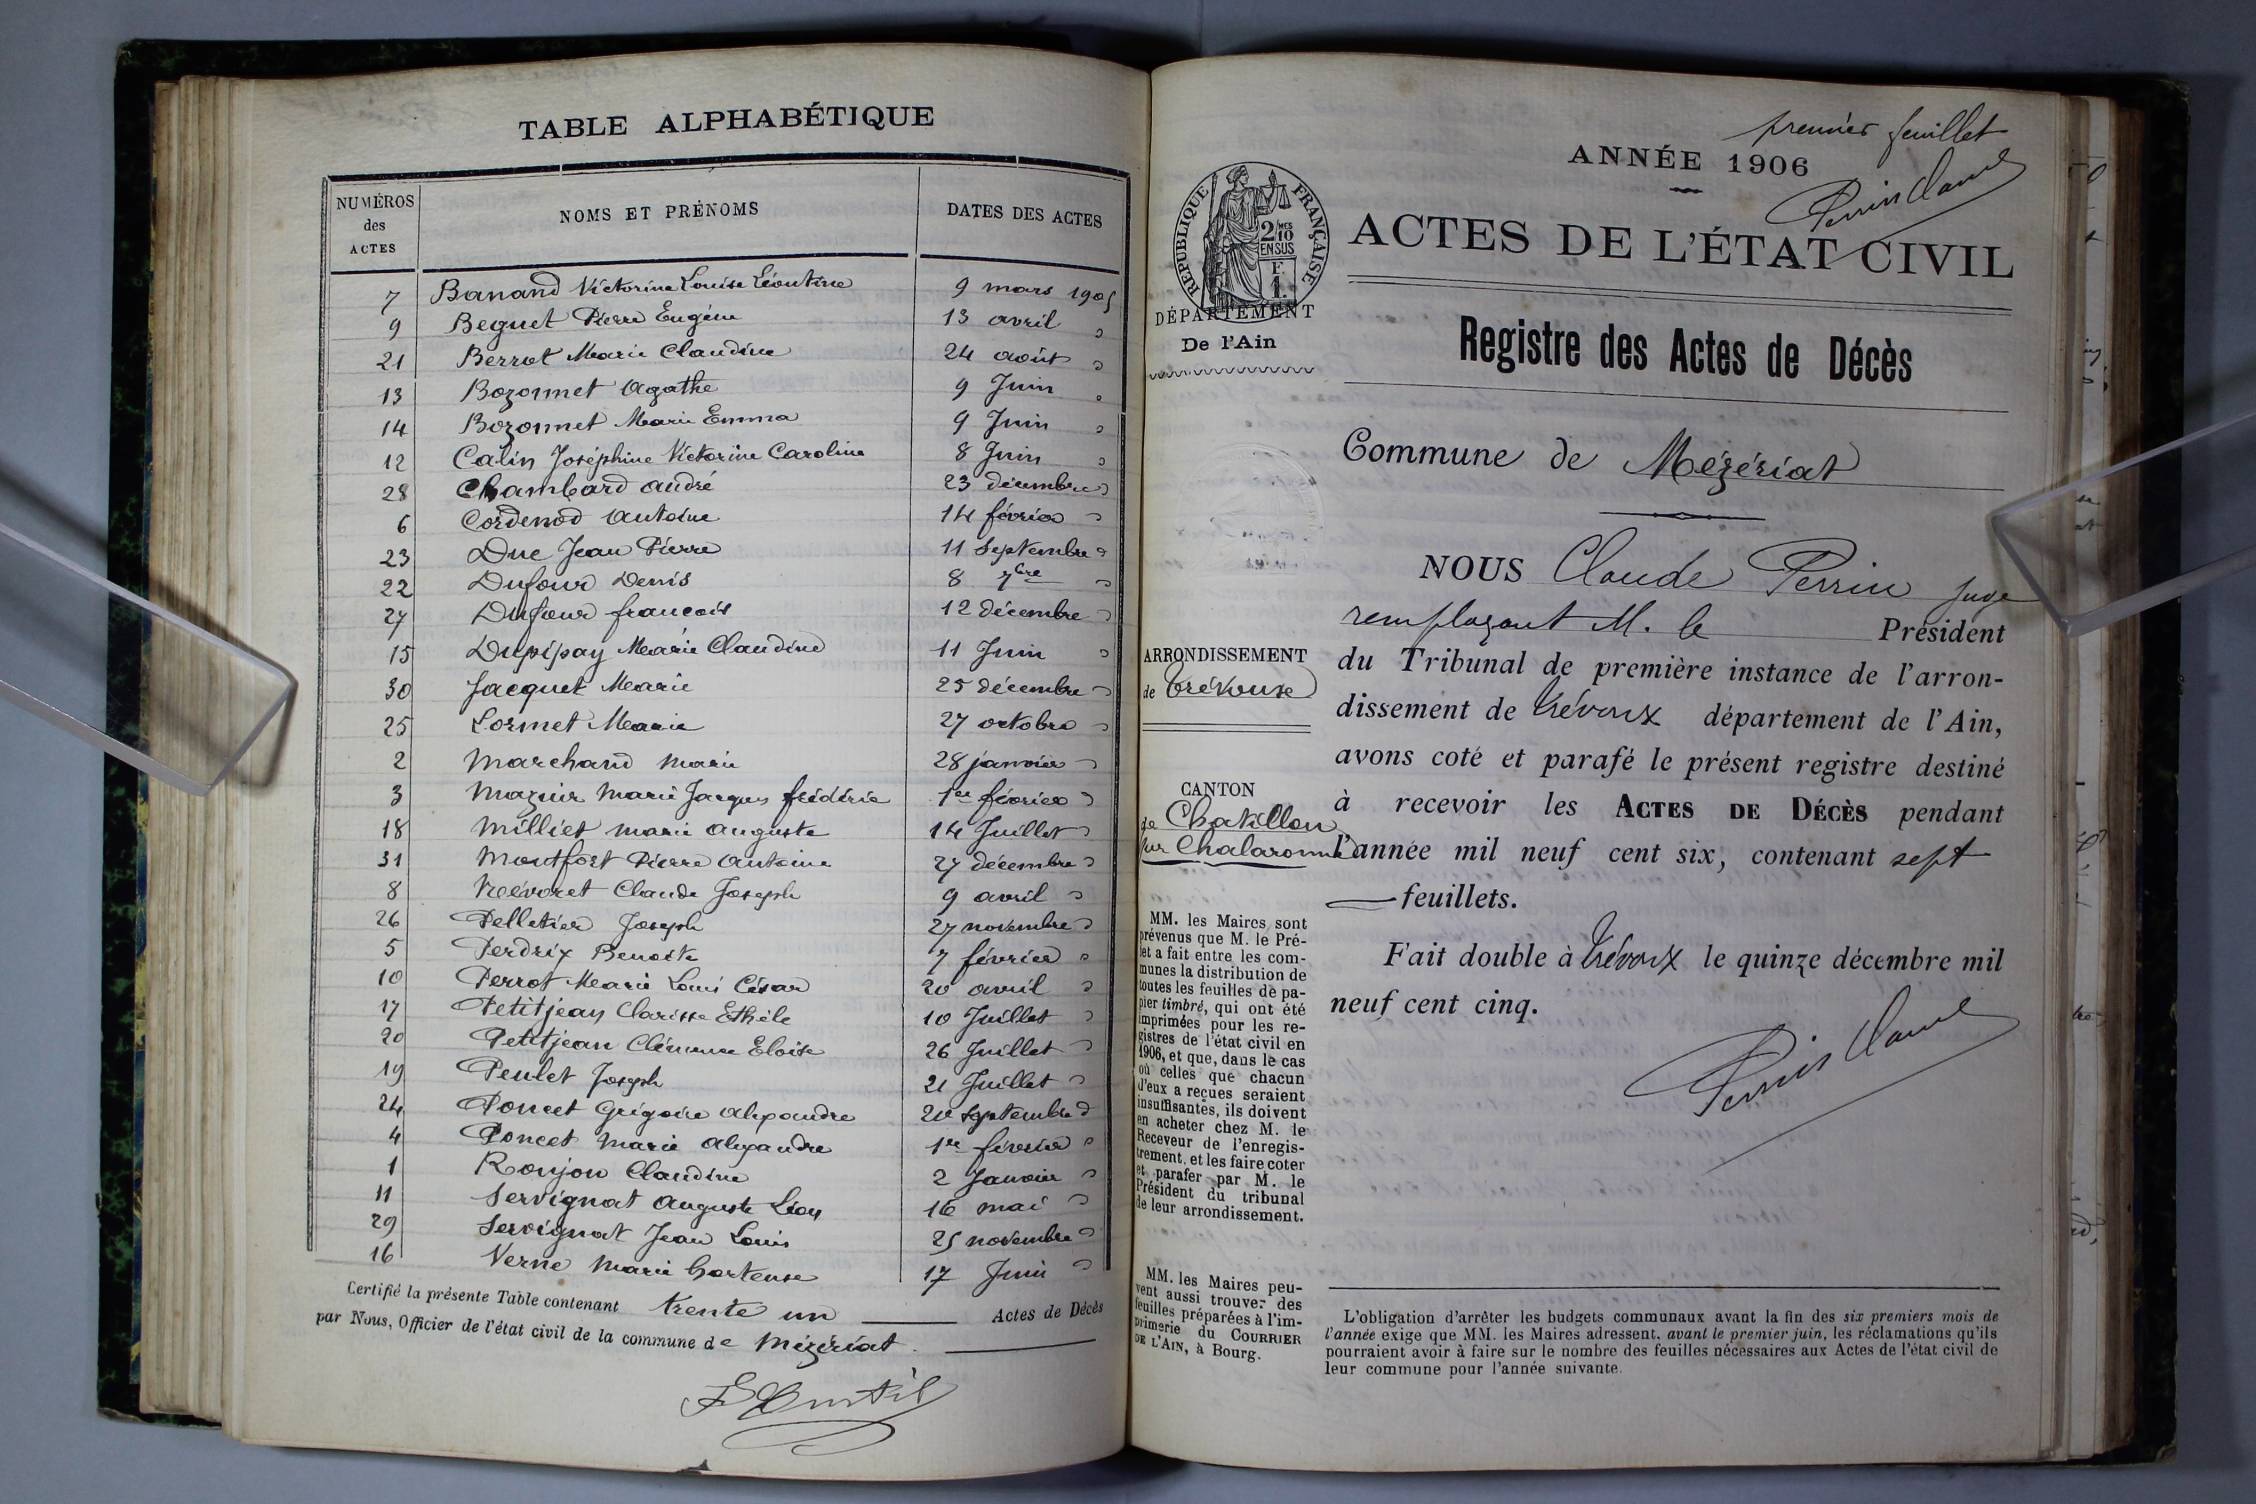 TABLE ALPHABÉTIQUE
NUMÉROS des ACTES NOMS ET PRÉNOMS DATES DES ACTES
7 Banand Victorine Louise Léontine 9 mars 1905
9 Beguet Pierre Eugène 13 avril "
21 Berrot Marie Claudine 24 août "
13 Bozonnet Agathe 9 Juin "
14 Bozonnet Marie Emma 9 Juin "
12 Calin Joséphine Victorine Caroline 8 Juin "
28 Chambard André 23 décembre "
6 Cordenod Antoine 14 février "
23 Duc Jean Pierre 11 Septembre "
22 Dufour Denis 8 7bre "
27 Dufour françois 12 décembre "
15 Dupipay Marie Claudine 11 Juin "
30 Jacquet Marie 25 décembre "
25 Lormet Marie 27 octobre "
2 Marchand Marie 28 janvier "
3 Mazuir Marie Jacques frédéric 1er février "
18 Milliet Marie Auguste 14 Juillet "
31 Montfort Pierre Antoine 27 décembre "
8 Claude Joseph 9 avril "
26 Pelletier Joseph 27 novembre "
5 Perdrix Benoite 7 février "
10 Perrot Marie Louis César 20 avril "
17 Petitjean Clarisse Ethèle 10 Juillet "
20 Petitjean Clémence Eloïse 26 Juillet "
19 Peulet Joseph 21 Juillet "
24 Poncet Grégoire Alexandre 20 Septembre "
4 Poncet Marie Alexandre 1er février "
1 Roujon Claudine 2 Janvier "
11 Servignat Auguste Léon 16 mai "
29 Servignat Jean Louis 25 novembre "
16 Verne Marie hortense 17 Juin "
Certifié la présente Table contenant trente un Actes de Décès
par Nous, Officier de l'état civil de la commune de Mézériat.
premier feuillet
ANNÉE 1906
Perrin Claude
ACTES DE L'ÉTAT CIVIL
RÉPUBLIQUE FRANÇAISE
2/10 MES
EN SUS
F.
1.
DÉPARTEMENT
De l'Ain
Registre des Actes de Décès
Commune de Mézériat
NOUS Claude Perrin Juge
remplaçant M. le Président
du Tribunal de première instance de l'arron-
dissement de Trévoux département de l'Ain,
avons coté et parafé le présent registre destiné
à recevoir les ACTES DE DÉCÈS pendant
l'année mil neuf cent six, contenant sept
feuillets.
Fait double à Trévoux le quinze décembre mil
neuf cent cinq.
Perrin Claude
ARRONDISSEMENT
de Trévoux
CANTON
de Chatillon
sur Chalaronne
MM. les Maires sont
prévenus que M. le Pré-
fet a fait entre les com-
munes la distribution de
toutes les feuilles de pa-
pier timbré, qui ont été
imprimées pour les re-
gistres de l'état civil en
1906, et que, dans le cas
où celles que chacun
d'eux a reçues seraient
insuffisantes, ils doivent
en acheter chez M. le
Receveur de l'enregis-
trement, et les faire coter
et parafer par M. le
Président du tribunal
de leur arrondissement.
MM. les Maires peu-
vent aussi trouver des
feuilles préparées à l'im-
primerie du COURRIER
DE L'AIN, à Bourg.
L'obligation d'arrêter les budgets communaux avant la fin des six premiers mois de
l'année exige que MM. les Maires adressent, avant le premier juin, les réclamations qu'ils
pourraient avoir à faire sur le nombre des feuilles nécessaires aux Actes de l'état civil de
leur commune pour l'année suivante.